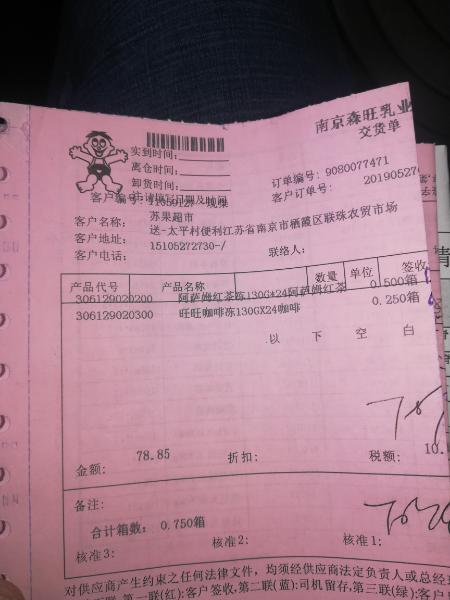 南京森旺乳业
交货单
实到时间:
离仓时间:
卸货时间:
订单编号: 9080077471
客户订单号: 20190527
客户编号:
客户名称: 苏果超市
客户地址: 送-太平村便利江苏省南京市栖霞区联珠农贸市场
客户电话: 15105272730-/ 联络人:
产品代号 产品名称 数量 单位 签收
306129020200 阿萨姆红茶冻130G*24阿萨姆红茶 0.500箱
306129020300 旺旺咖啡冻130GX24咖啡 0.250箱
以 下 空 白
金额: 78.85 折扣: 税额: 10.
备注:
合计箱数: 0.750箱
核准3: 核准2: 核准1:
对供应商产生约束之任何法律文件，均须经供应商法定负责人或总经
第一联(红):客户签收,第二联(蓝):司机留存,第三联(绿):客户